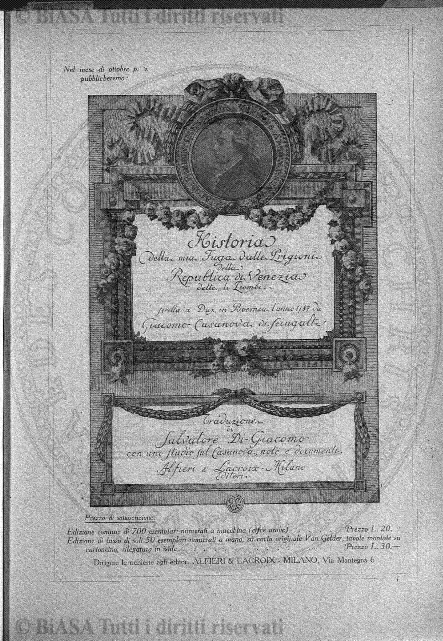 © BiASA Tutti i diritti riservati
Nel mese di ottobre p. v.
pubblicheremo:
Historia
della mia Fuga dalle Prigioni
della
Republica di Venezia
dette li Piombi
scritta a Dux in Boemia l'anno 1787 da
Giacomo Casanova di Seingalt
traduzione
di
Salvatore Di-Giacomo
con uno studio sul Casanova, note e documenti.
Alfieri & Lacroix - Milano
Editori
Prezzo di sottoscrizione:
Edizione comune di 700 esemplari numerati a macchina Prezzo L. 20.
Edizione di lusso di soli 50 esemplari numerati a mano, su carta originale Van Gelder, tavole montate su
cartoncino, legatura in Prezzo L. 30.—
Dirigere le richieste agli editori ALFIERI & LACROIX - MILANO, Via Mantegna 6
© BiASA Tutti i diritti riservati